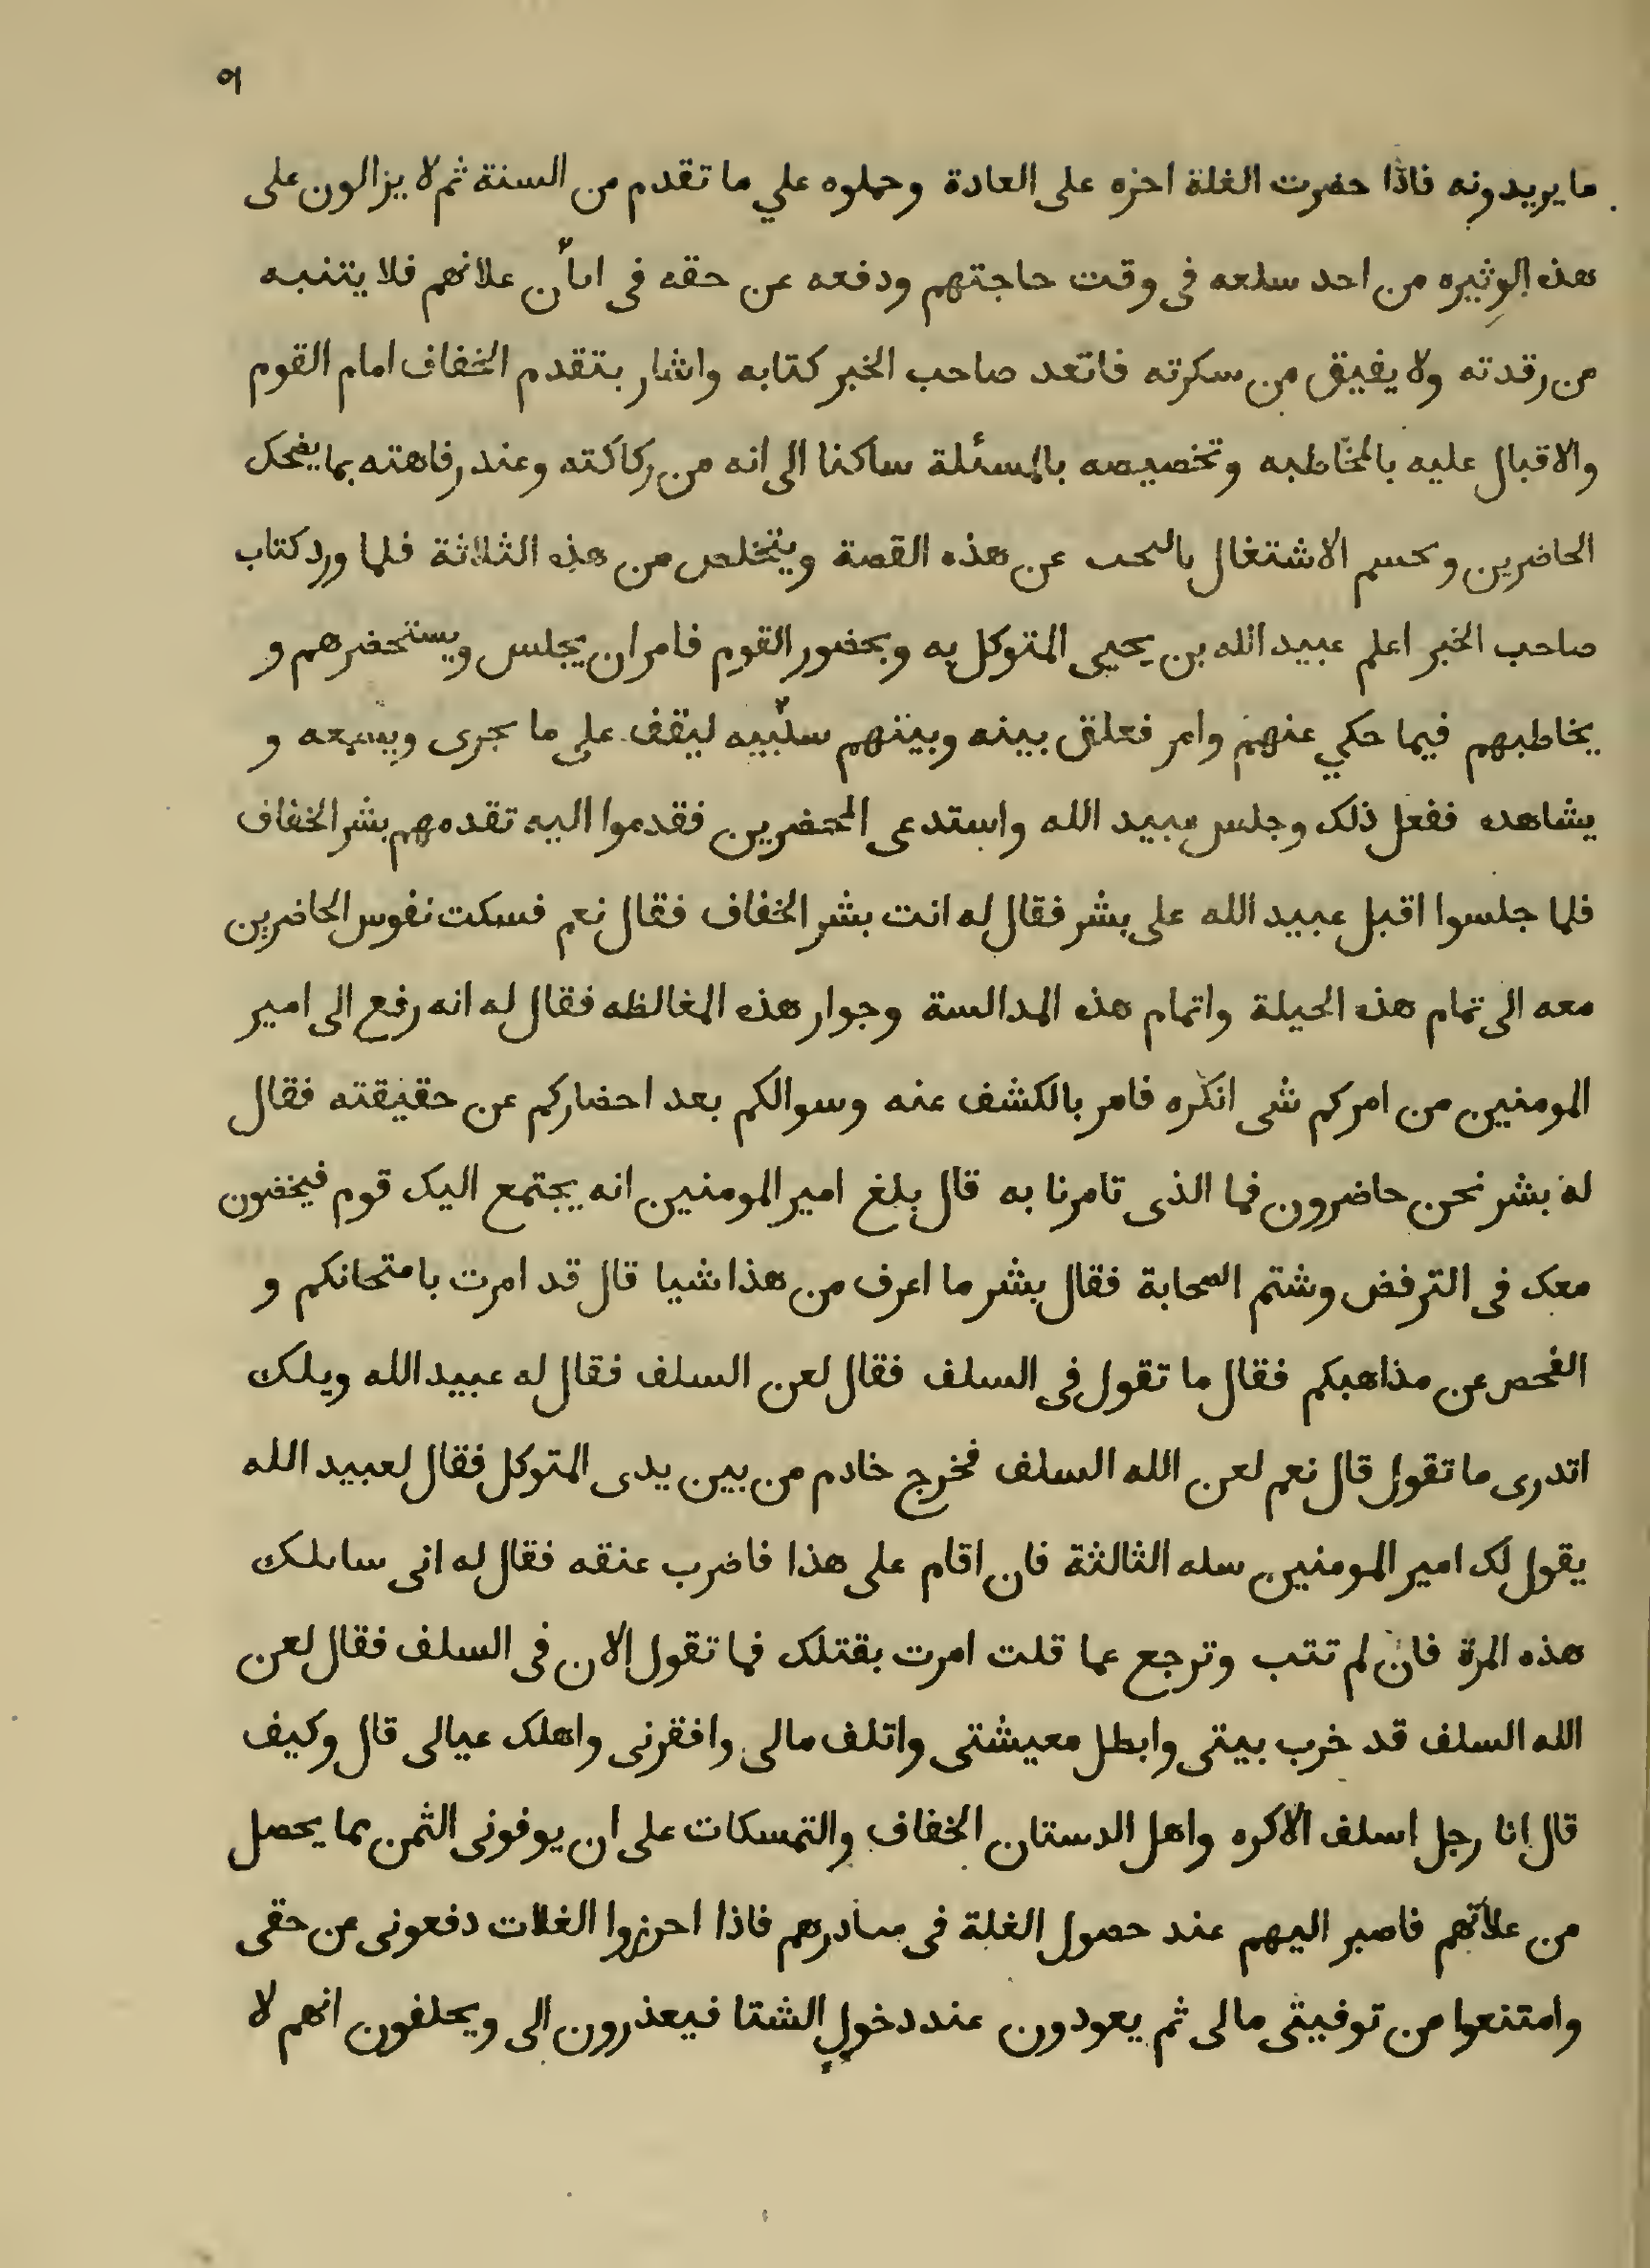 ٥١
ما يريدونه فاذا حضرت الغلة احزه على العادة وحملوه علي ما تقدم من السنة ثم لا يزالون على
هذه الوثيره من احد سلعه فى وقت حاجتهم ودفعه عن حقه فى اىاّن علاتهم فلا يتنبه
من رقدته ولا يفيق من سكرته فاتعد صاحب الخبر كتابه واشار بتقدم الخفاف امام القوم
والاقبال عليه بالمخاطبه وتخصيصه بالمسئلة ساكنا الى انه من ركاكته وعند رفاهته بما يضحك
الحاضرين ويحسم الاشتغال بالبحب عن هذه القصة ويتخلص من هذه الثلاثة فلما ورد كتاب
صاحب الخبر اعلم عبيد الله بن يحيى المتوكل به وبحضور القوم فامر ان يجلس ويستحضرهم و
يخاطبهم فيما حكي عنهم وامر فعلق بينه وبينهم سلبّيه ليقف على ما يجرى ويسمعه و
يشاهده ففعل ذلك وجلس عبيد الله واستدعى المحضرين فقدموا اليه تقدمهم بشر الخفاف
فلما جلسوا اقبل عبيد الله على بشر فقال له انت بشر الخفاف فقال نعم فسكت نفوس الحاضرين
معه الى تمام هذه الحيلة واتمام هذه المدالسة وجوار هذه المغالظه فقال له انه رفع الى امير
المومنين من امركم شى انكره فامر بالكشف عنه وسوالكم بعد احضاركم عن حقيقته فقال
له بشر نحن حاضرون فما الذى تامرنا به قال بلغ امير المومنين انه يجتمع اليك قوم فيخضون
معك فى الترفض وشتم الصحابة فقال بشر ما اعرف من هذا شيا قال قد امرت بامتحانكم و
الفحص عن مذاهبكم فقال ما تقول فى السلف فقال لعن السلف فقال له عبيد الله ويلك
اتدرى ما تقول قال نعم لعن الله السلف فخرج خادم من بين يدى المتوكل فقال لعبيد الله
يقول لك امير المومنين سله الثالثة فان اقام على هذا فاضرب عنقه فقال له انى سائلك
هذه المرة فان لم تتب وترجع عما قلت امرت بقتلك فما تقول الان فى السلف فقال لعن
الله السلف قد خرب بيتى وابطل معيشتى واتلف مالى وافقرنى واهلك عيالى قال وكيف
قال انا رجل اسلف الاكره واهل الدستان الخفاف والتمسكات على ان يوفونى الثمن مما يحصل
من علاتهم فاصير اليهم عند حصول الغلة فى بيادرهم فاذا احرزوا الغلات دفعونى عن حقى
وامتنعوا من توفيتى مالى ثم يعودون عند دخول الشتا فيعذرون الى ويحلفون انهم لا